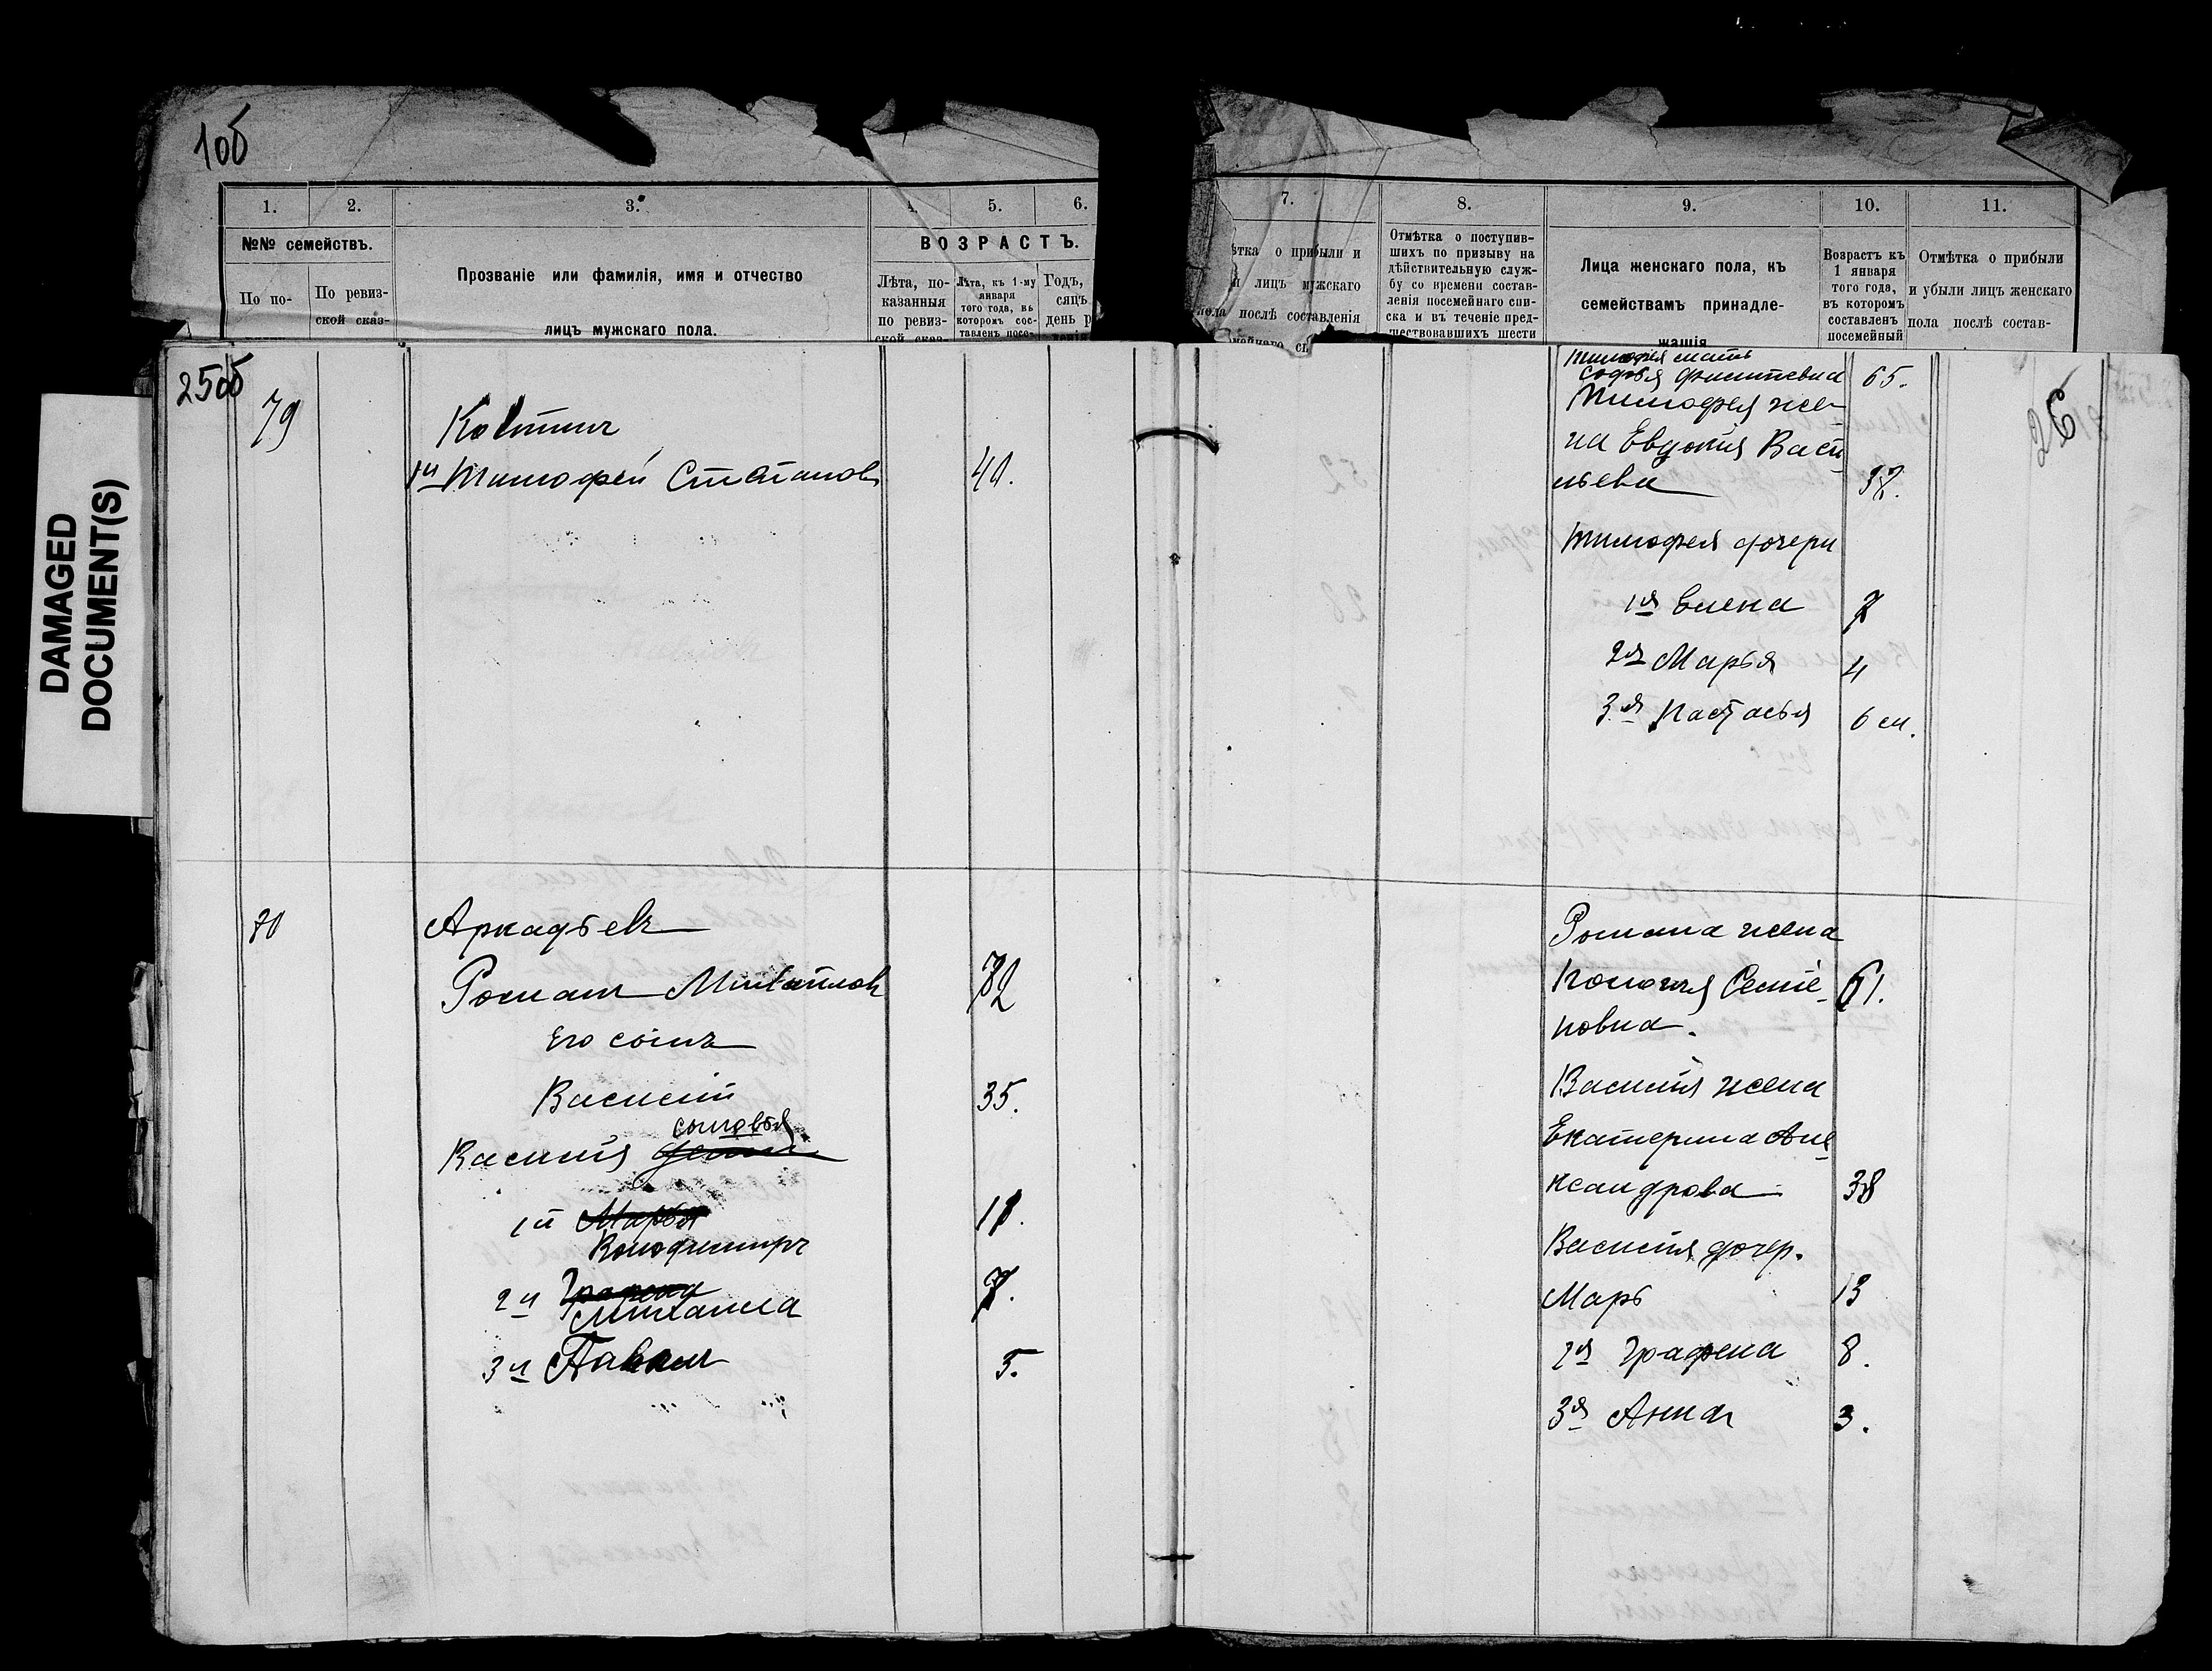 DAMAGED
DOCUMENT(S)
10б
1.
2.
3.
4.
5.
6.
№№ семействъ.
По по-
По ревиз-
ской сказ-
Прозваніе или фамилія, имя и отчество
лицъ мужскаго пола.
ВОЗРАСТЪ.
Лѣта, по-
казанныя
по ревиз-
ской сказ-
Лѣта, къ 1-му
января
того года, въ
которомъ сос-
тавленъ посе-
Годъ,
сяцъ
день р
7.
8.
9.
10.
11.
ѣтка о прибыли и
и лицъ мужскаго
пола послѣ составленія
Отмѣтка о поступив-
шихъ по призыву на
дѣйствительную служ-
бу со времени состав-
ленія посемейнаго спи-
ска и въ теченіе пред-
шествовавшихъ шести
Лица женскаго пола, къ
семействамъ принадле-
жащія
Возрастъ къ
1 января
того года,
въ которомъ
составленъ
посемейный
Отмѣтка о прибыли
и убыли лицъ женскаго
пола послѣ состав-
25об
79
1й Тимофей Степановъ
Тимофея мать
Софья 65.
Тимофея же-
на Евдокія Васи-
льева
Тимофея дочери
1я Елена
2я Марья 4
3я Настасья 6 м.
26
80
Аркадьевъ
Романъ Михайловъ 72
Его сынъ
Василій 35.
сыновья
Василія дети
1й Марья
Володимиръ
2й Графена
Михаила 7.
3й Павелъ 5.
Романа жена
Семе-
новна. 61.
Василія жена
Екатерина Але-
ксандрова 38
Василія дочер.
Марь 13
2я Графена 8.
3я Анна 3.